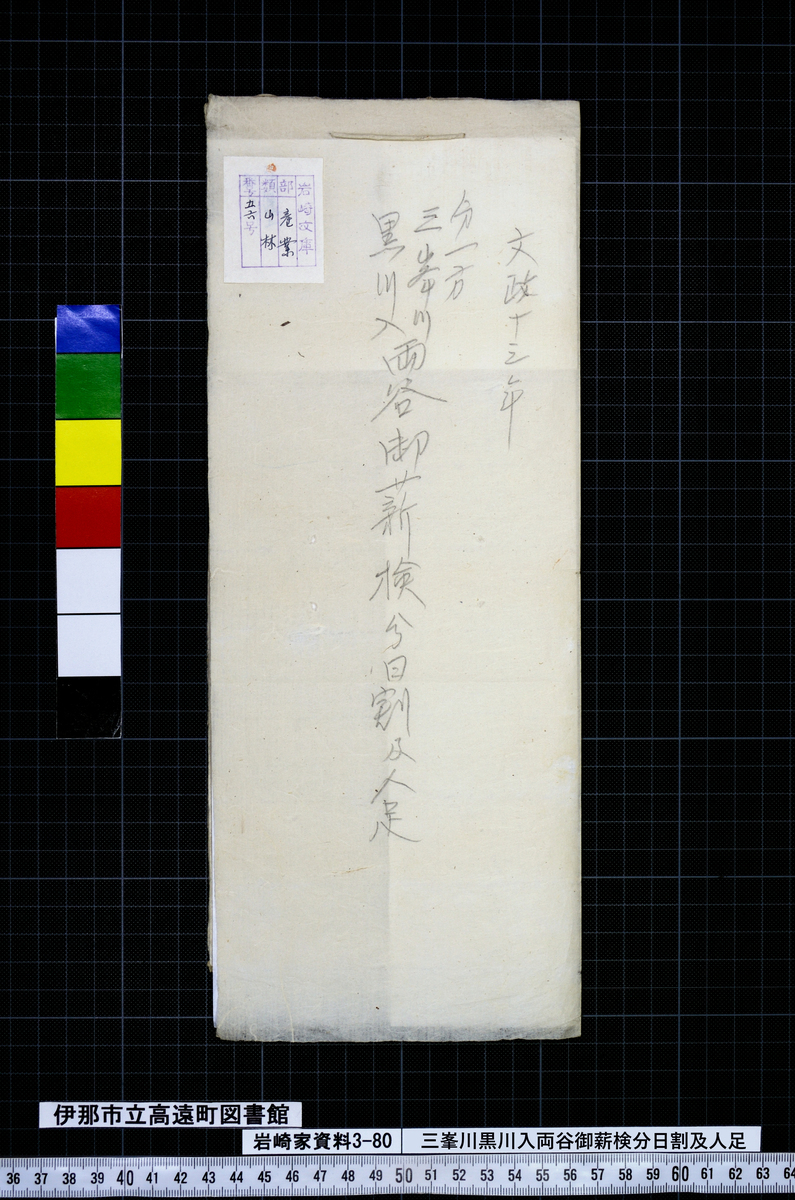 文政十三年
分一方
三峯川
黒川入両谷御薪検分日割及人足
岩崎文庫
部 産業
類 山林
番号 五六号
伊那市立高遠町図書館
岩崎家資料3-80
三峯川黒川入両谷御薪検分日割及人足
36 37 38 39 40 41 42 43 44 45 46 47 48 49 50 51 52 53 54 55 56 57 58 59 60 61 62 63 64